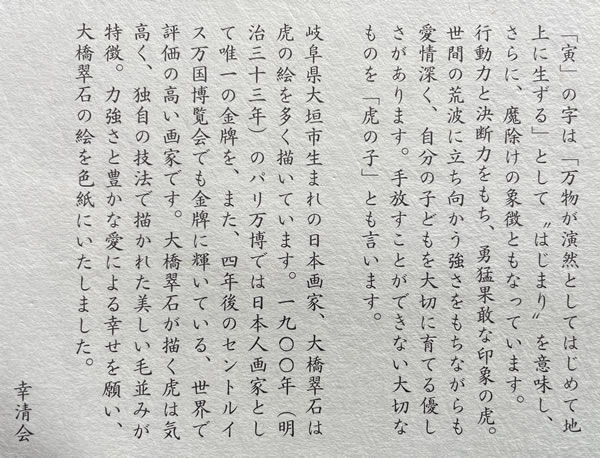 「寅」の字は「万物が演然としてはじめて地
上に生ずる」として〝はじまり〟を意味し、
さらに、魔除けの象徴ともなっています。
行動力と決断力をもち、勇猛果敢な印象の虎。
世間の荒波に立ち向かう強さをもちながらも
愛情深く、自分の子どもを大切に育てる優し
さがあります。手放すことができない大切な
ものを「虎の子」とも言います。
岐阜県大垣市生まれの日本画家、大橋翠石は
虎の絵を多く描いています。一九〇〇年（明
治三十三年）のパリ万博では日本人画家とし
て唯一の金牌を、また、四年後のセントルイ
ス万国博覧会でも金牌に輝いている、世界で
評価の高い画家です。大橋翠石が描く虎は気
高く、独自の技法で描かれた美しい毛並みが
特徴。力強さと豊かな愛による幸せを願い、
大橋翠石の絵を色紙にいたしました。
幸清会